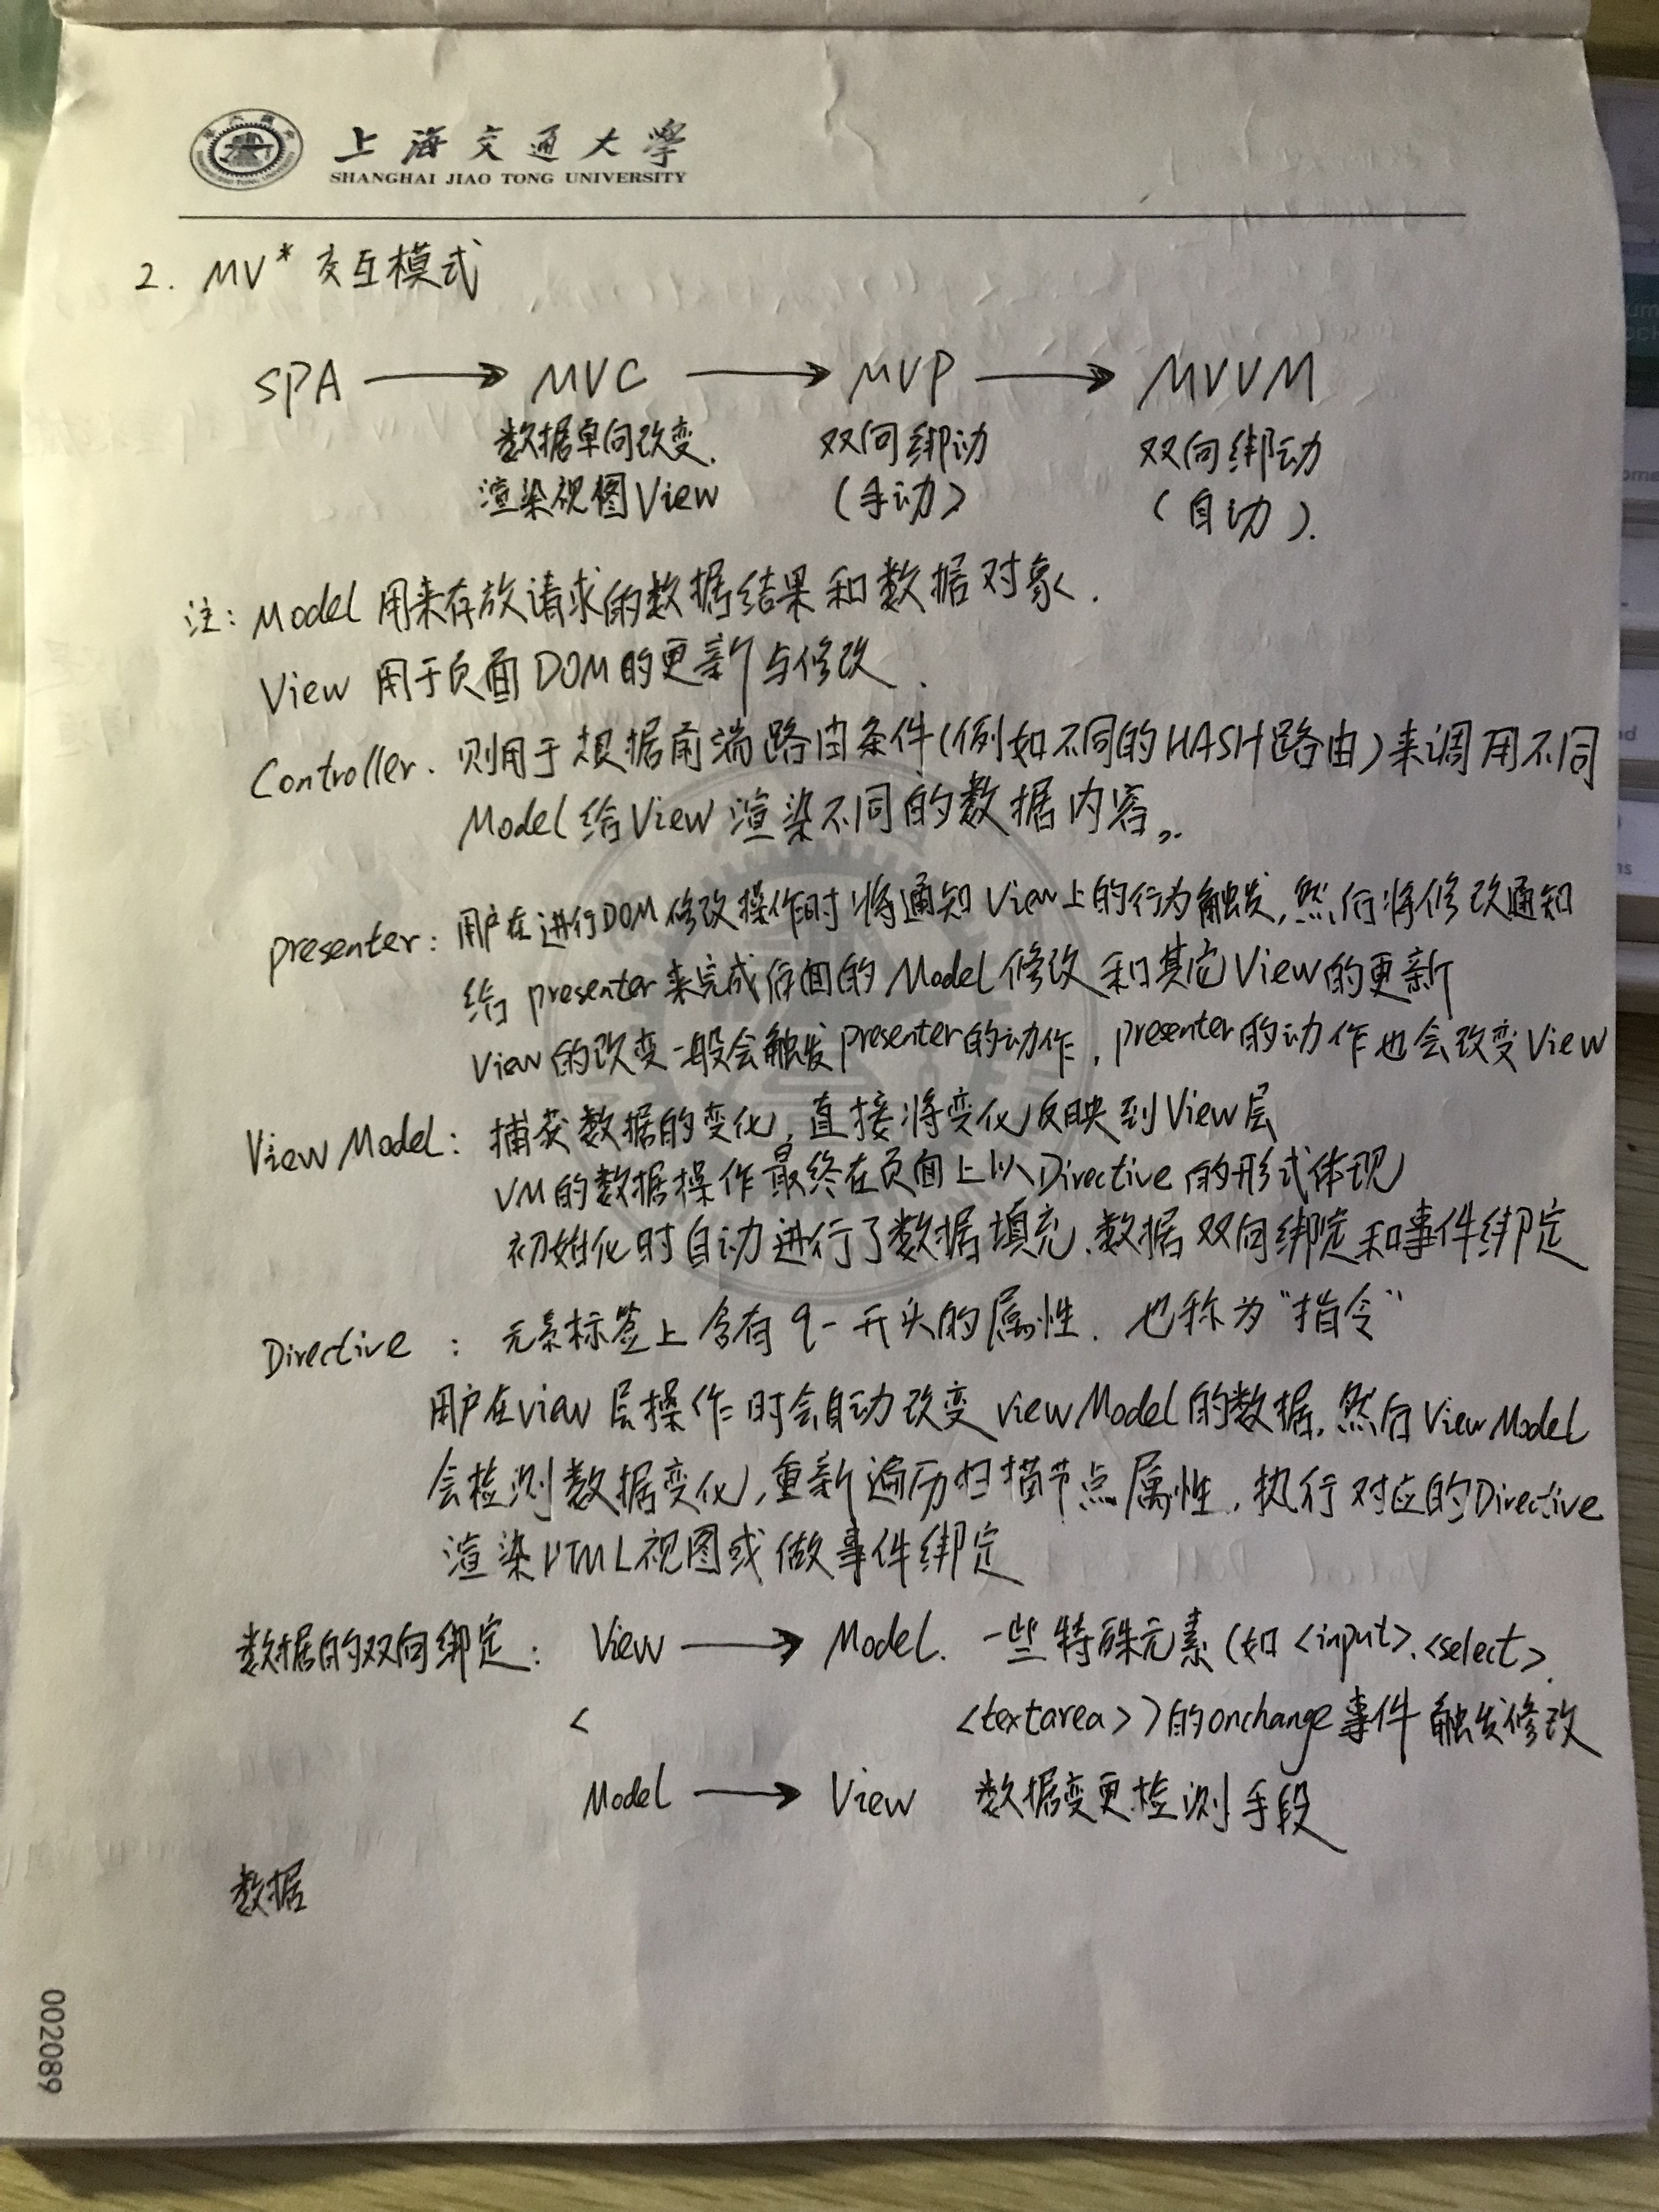 上海交通大學
SHANGHAI JIAO TONG UNIVERSITY
2. MV* 交互模式
SPA → MVC → MVP → MVVM
数据单向改变. 双向绑动 双向绑动
渲染视图View (手动) (自动).
注: Model 用来存放请求的数据结果和数据对象.
View 用于页面DOM的更新与修改.
Controller. 则用于根据前端路由条件(例如不同的HASH路由)来调用不同
Model给View渲染不同的数据内容。
presenter: 用户在进行DOM修改操作时将通知View上的行为触发,然后将修改通知
给presenter来完成后面的Model修改和其它View的更新
View的改变一般会触发presenter的动作, presenter的动作也会改变View
View Model: 捕获数据的变化,直接将变化反映到View层
VM的数据操作最终在页面上以Directive的形式体现
初始化时自动进行了数据填充、数据双向绑定和事件绑定
Directive : 元素标签上含有 q-开头的属性. 也称为“指令”
用户在view层操作时会自动改变viewModel的数据,然后ViewModel
会检测数据变化,重新遍历扫描节点属性,执行对应的Directive
渲染HTML视图或做事件绑定
数据的双向绑定: View → Model. 一些特殊元素(如<input>、<select>、
< <textarea>)的onchange事件触发修改
Model → View 数据变更检测手段
数据
002089